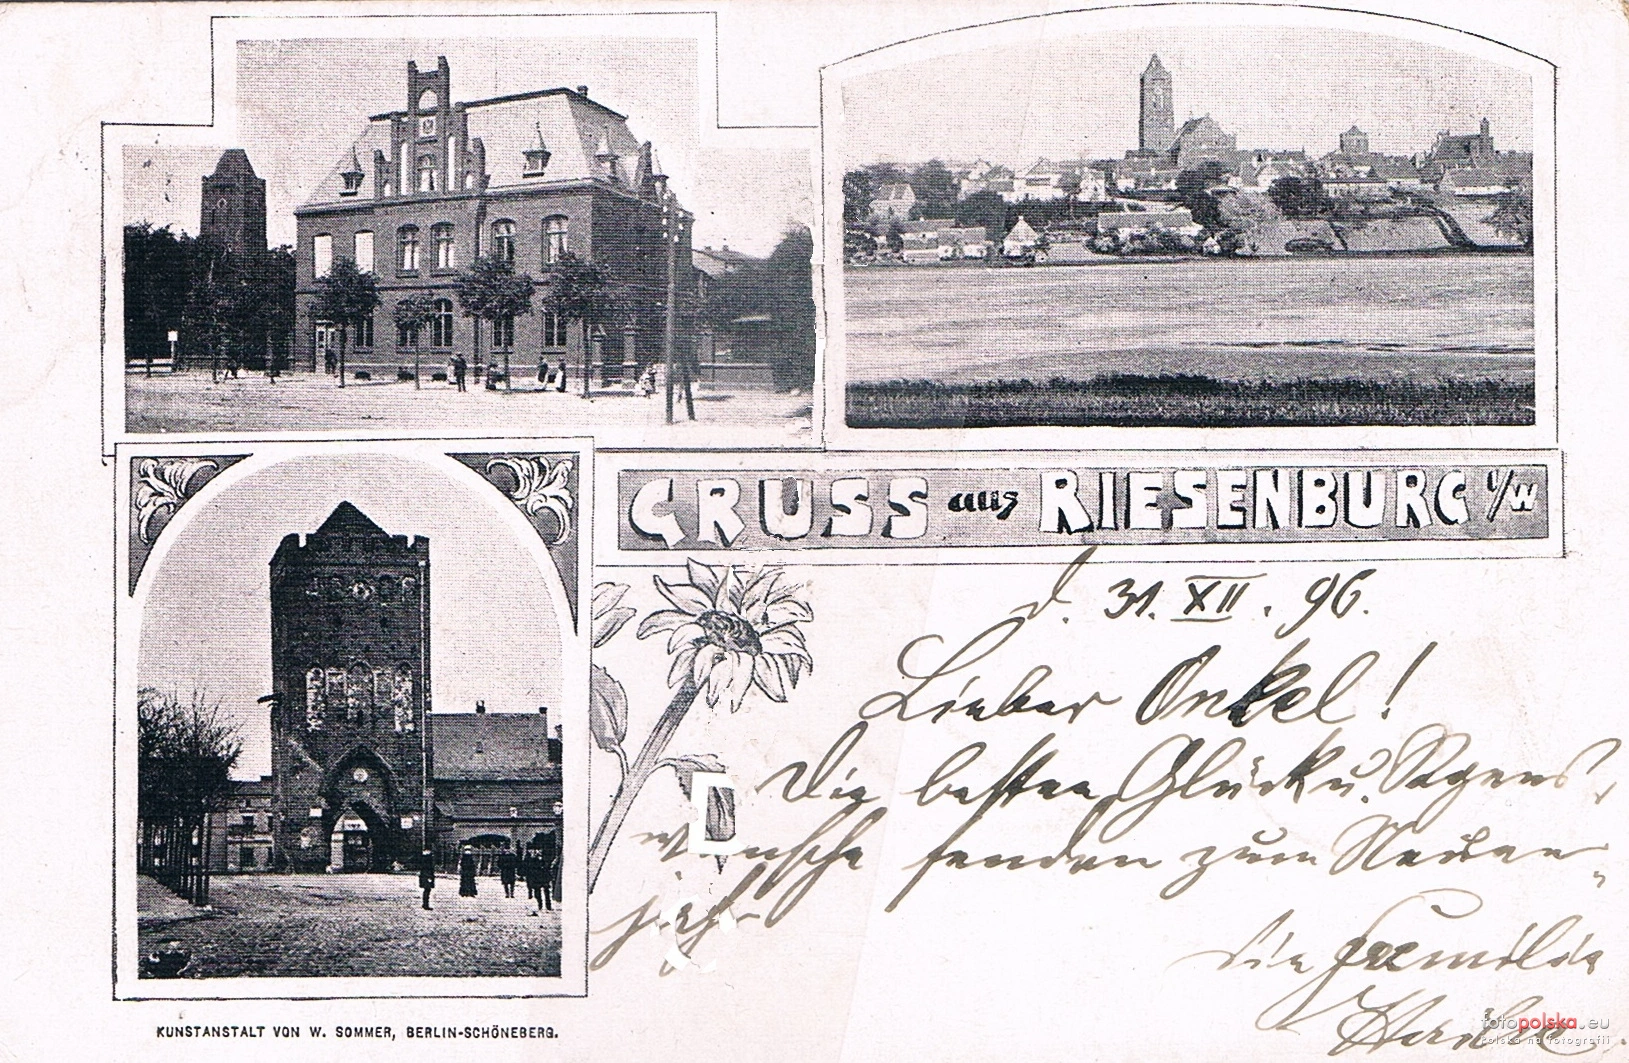 GRUSS aus RIESENBURG i/W
d. 31. XII. 96.
Lieber Onkel!
Die besten Glück u. Segens-
wünsche senden zum Neuen-
jahr
die Familie
KUNSTANSTALT VON W. SOMMER, BERLIN-SCHÖNEBERG.
fotopolska.eu
polska na fotografii